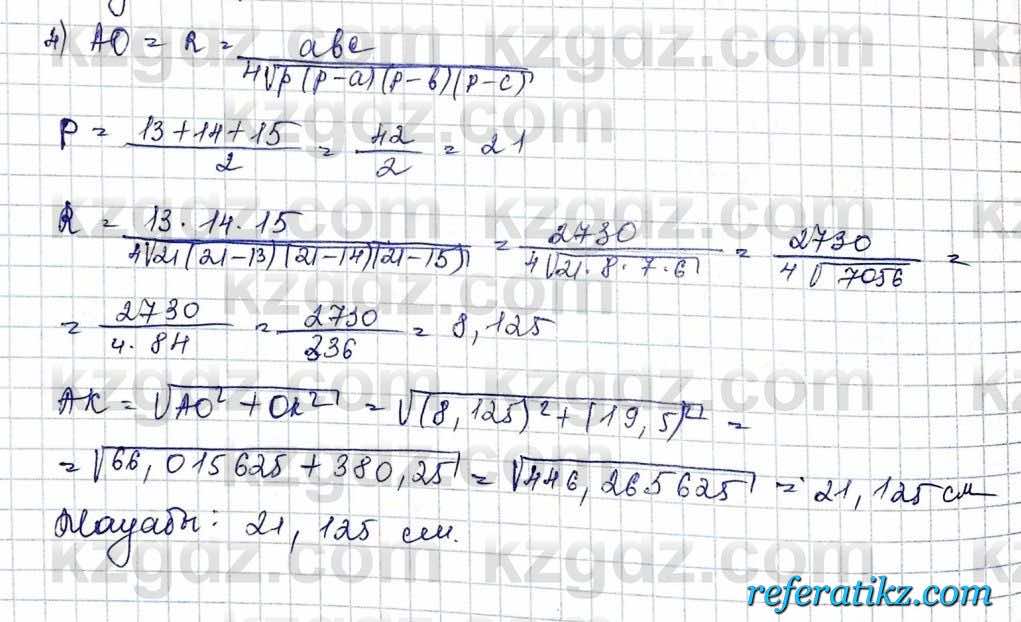 4) AO = R = abc / 4√p(p-a)(p-b)(p-c)
P = 13+14+15 / 2 = 42 / 2 = 21
R = 13·14·15 / 4√21(21-13)(21-14)(21-15) = 2730 / 4√21·8·7·6 = 2730 / 4√7056 =
= 2730 / 4·84 = 2730 / 336 = 8,125
AK = √AO²+OK² = √(8,125)²+(19,5)² =
= √66,015625+380,25 = √446,265625 = 21,125 см
Жауабы: 21,125 см.
kzgdz.com
referatikz.com